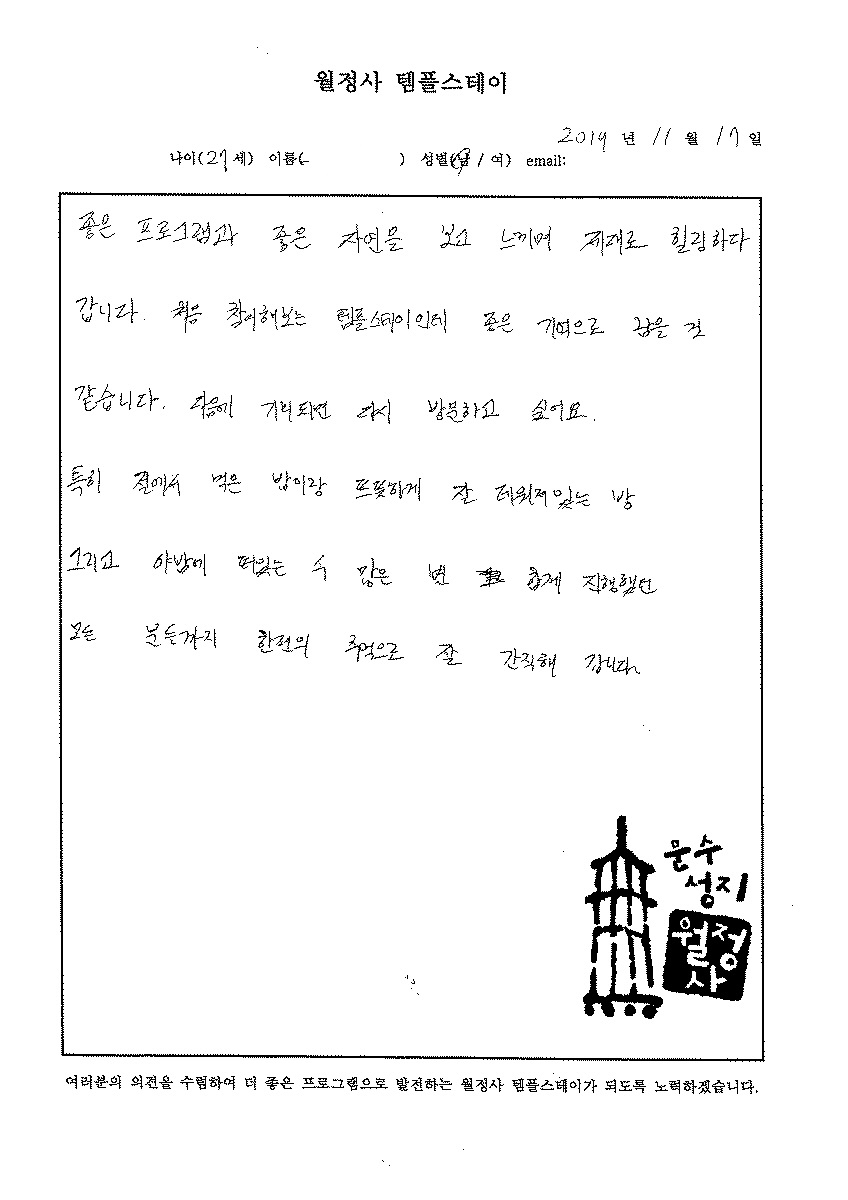 월정사 템플스테이
2019 년 11 월 17 일
나이(27세) 이름( ) 성별(남 / 여) email:
좋은 프로그램과 좋은 자연을 보고 느끼며 제대로 힐링하다
갑니다. 처음 참여해보는 템플스테이인데 좋은 기억으로 남을 것
같습니다. 다음에 기회되면 다시 방문하고 싶어요.
특히 절에서 먹은 밥이랑 따뜻하게 잘 데워져있는 방
그리고 야밤에 떠있는 수 많은 별 함께 진행했던
모든 분들까지 한편의 추억으로 잘 간직해 갑니다.
문수
성지
월정
사
여러분의 의견을 수렴하여 더 좋은 프로그램으로 발전하는 월정사 템플스테이가 되도록 노력하겠습니다.